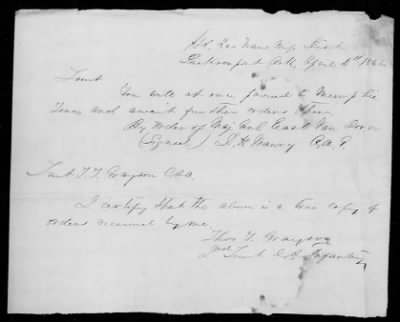 Hd. Qrs Trans Miss Dist.
Jacksonport Ark, April 4th 1862
Lieut
You will at once proceed to Memphis
Tenn, and await further orders there.
By order of Maj Genl Earl Van Dorn
(Signed) D. H. Maury A.A.G
Lieut T. T. Grayson CSA
I certify that the above is a true copy of
orders received by me
Thos. T. Grayson
Lieut C.S. Infantry